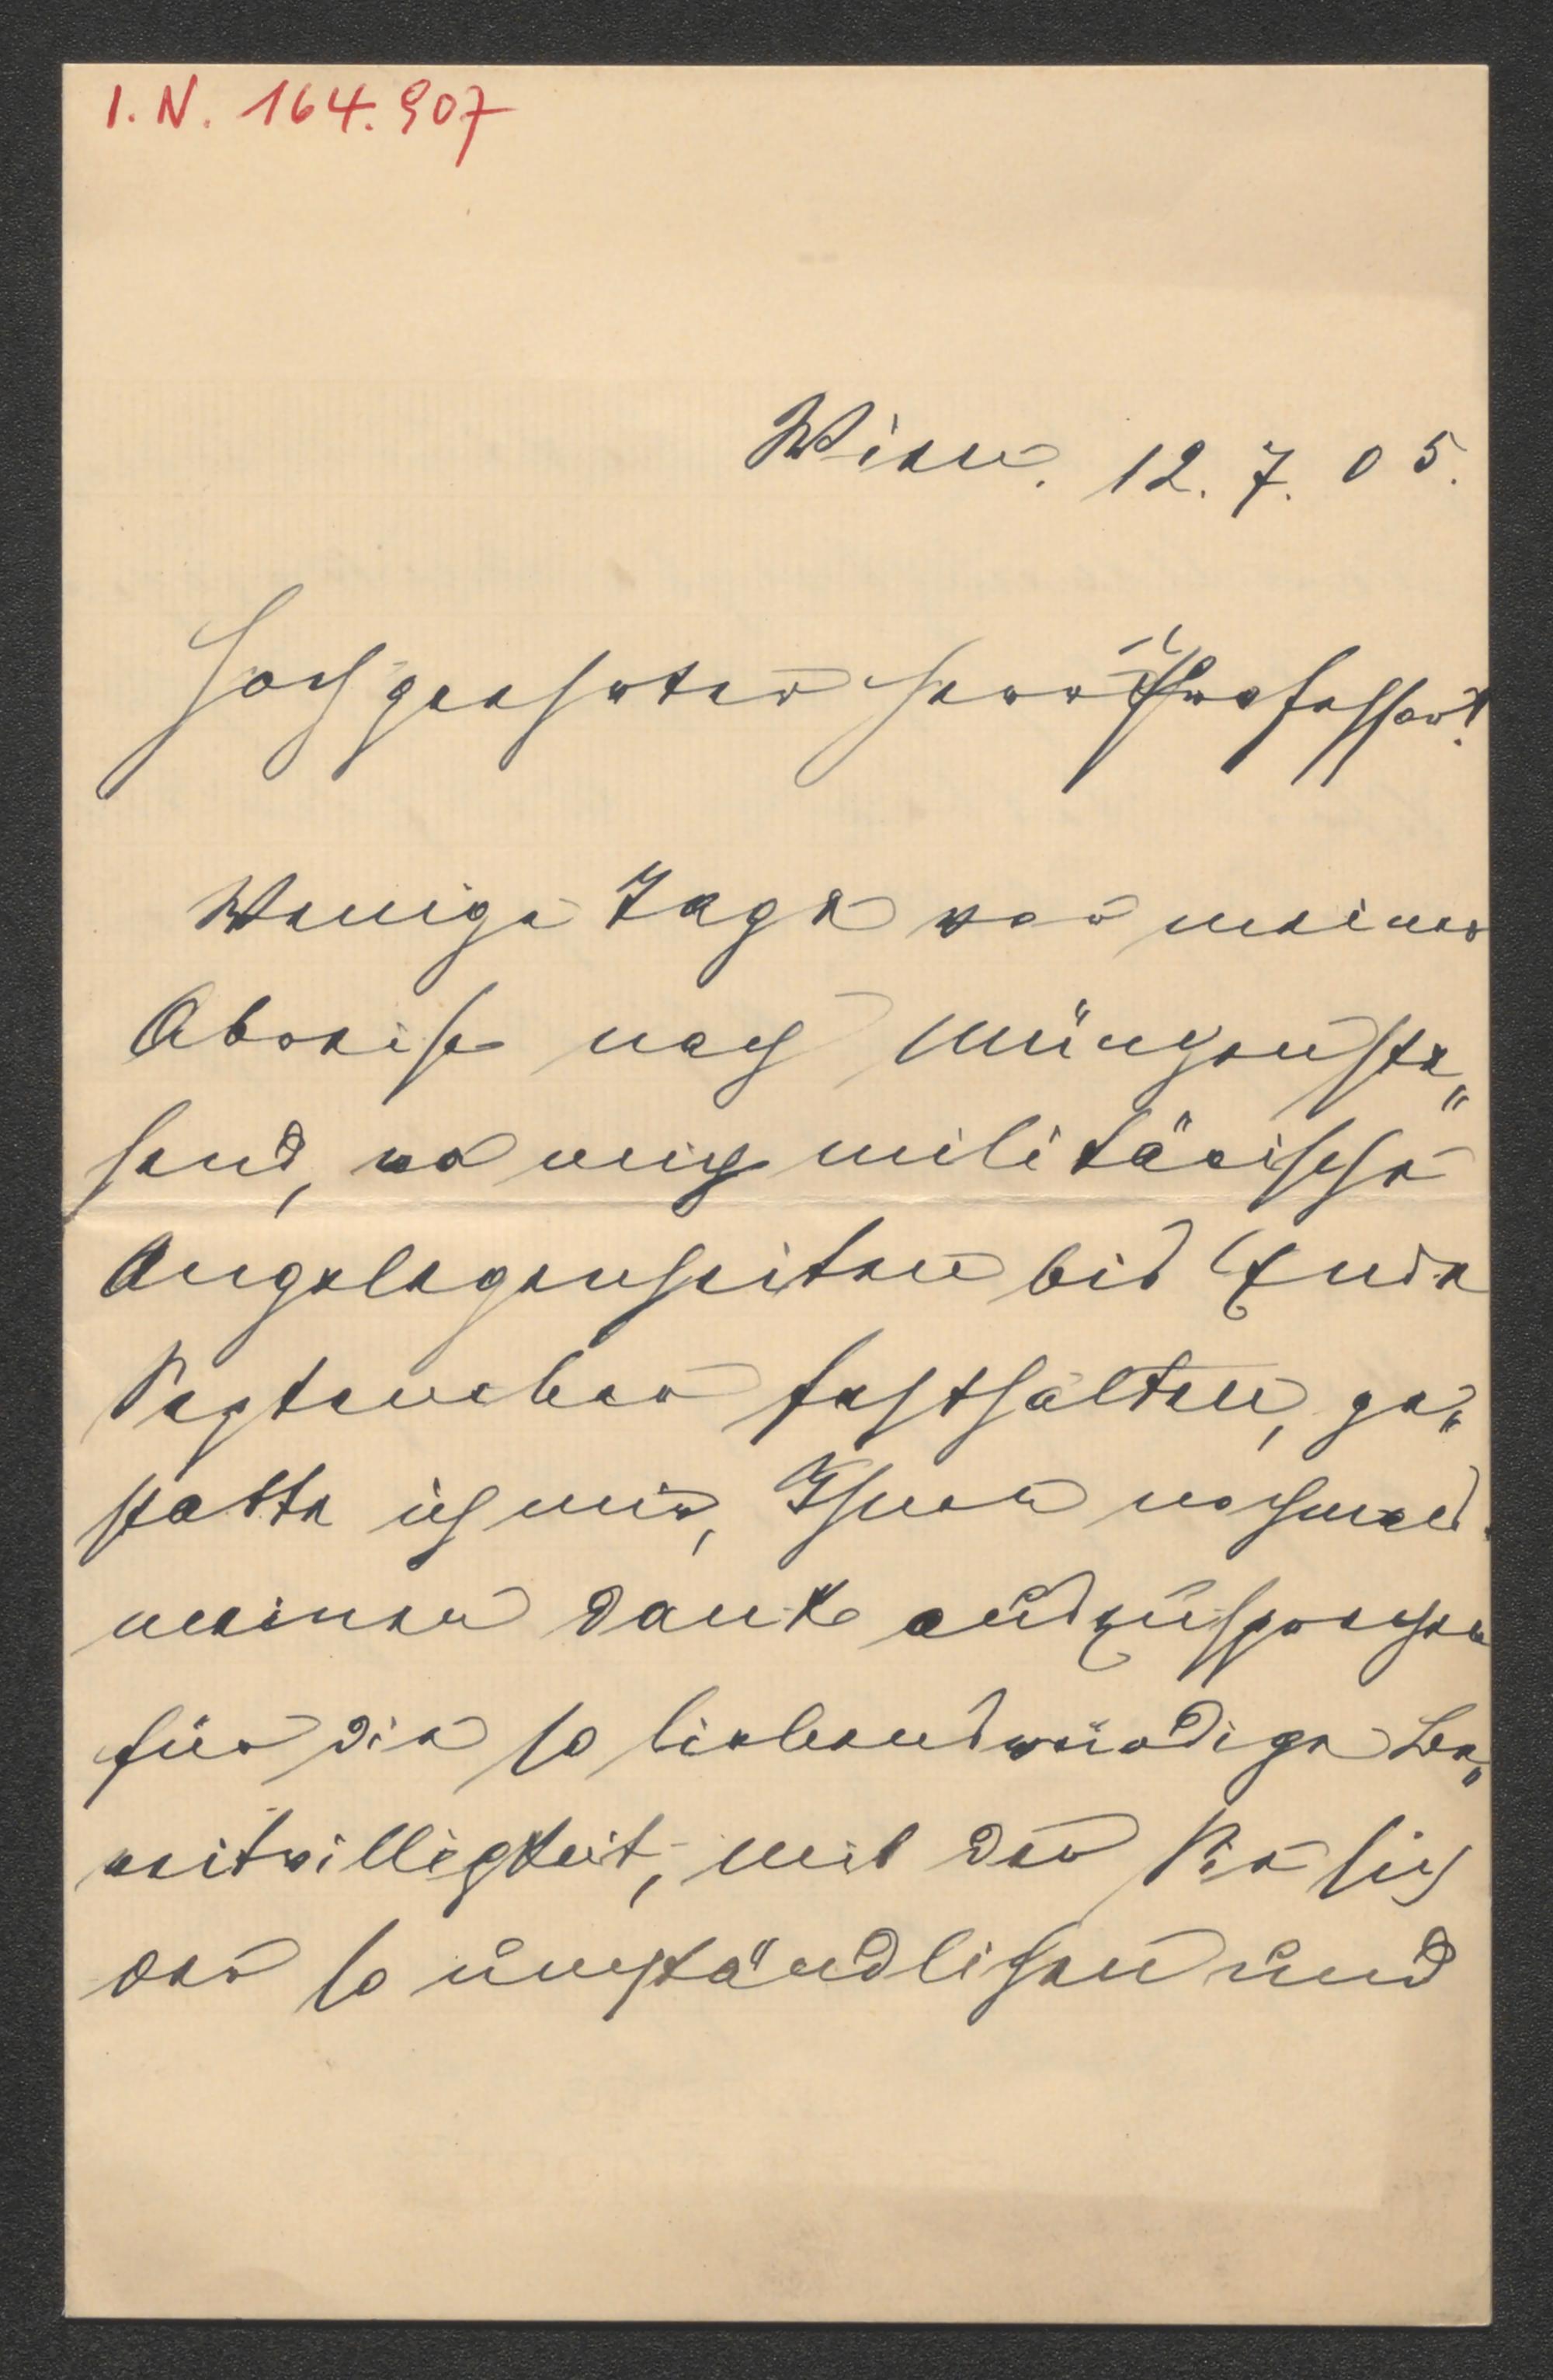 I. N. 164.907
Wien. 12. 7. 05.
Hochgeehrter Herr Professor!
Wenige Tage vor meiner
Abreise nach Münchens„
, wo mich militärische
Angelegenheiten bis Ende
September festhalten, ge„
statte ich mir, Ihnen nochmals
meinen Dank auszusprechen
für die so liebenswürdige Be„
reitwilligkeit, mit der Sie sich
der so umständlichen und